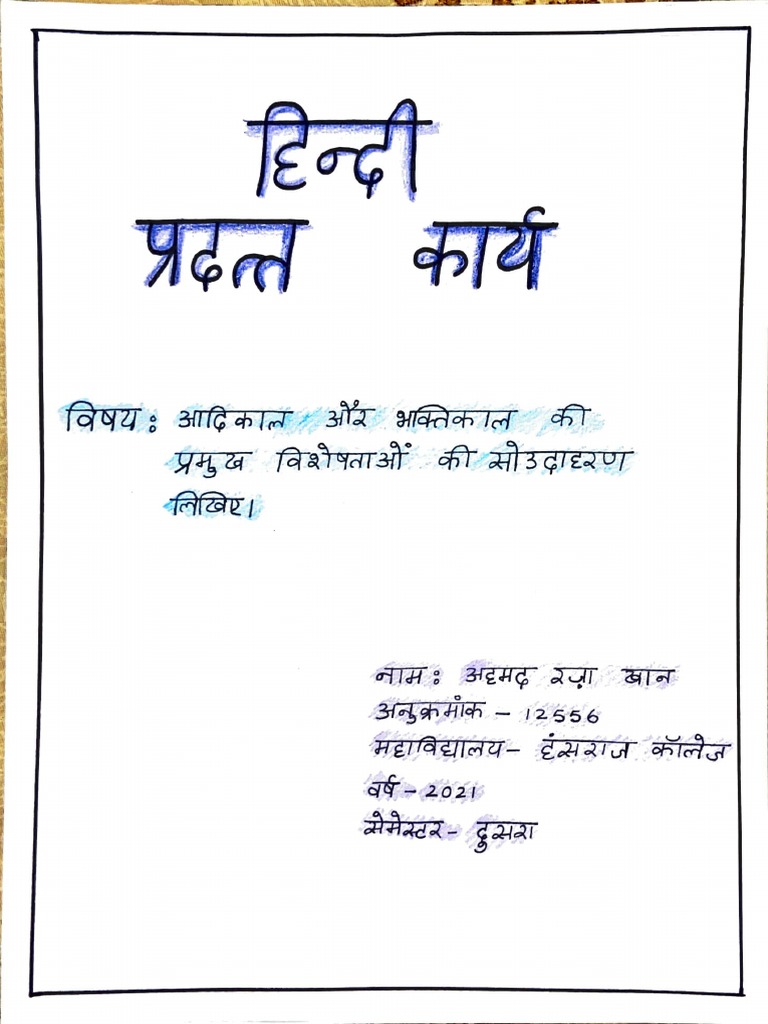 हिन्दी
प्रदत्त कार्य
विषय: आदिकाल और भक्तिकाल की
प्रमुख विशेषताओं की सोउदाहरण
लिखिए।
नाम: अहमद रज़ा खान
अनुक्रमांक - 12556
महाविद्यालय - हंसराज कॉलेज
वर्ष - 2021
सेमेस्टर - दुसरा